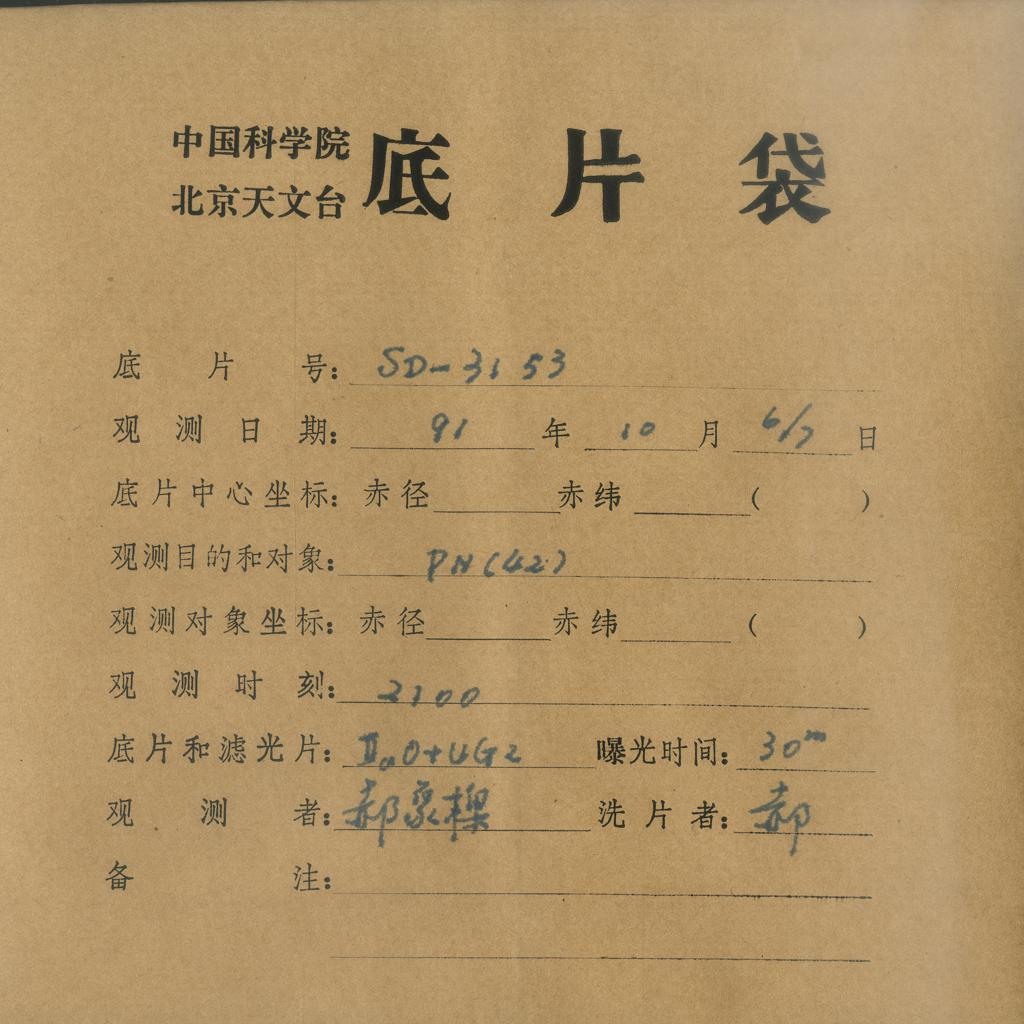 中国科学院
北京天文台
底片袋
底片号: SD-3153
观测日期: 91 年 10 月 6/7 日
底片中心坐标: 赤径 赤纬 ( )
观测目的和对象: PN(42)
观测对象坐标: 赤径 赤纬 ( )
观测时刻: 2100
底片和滤光片: IIaO+UG2 曝光时间: 30m
观测者: 郝象樑 洗片者: 郝
备注: